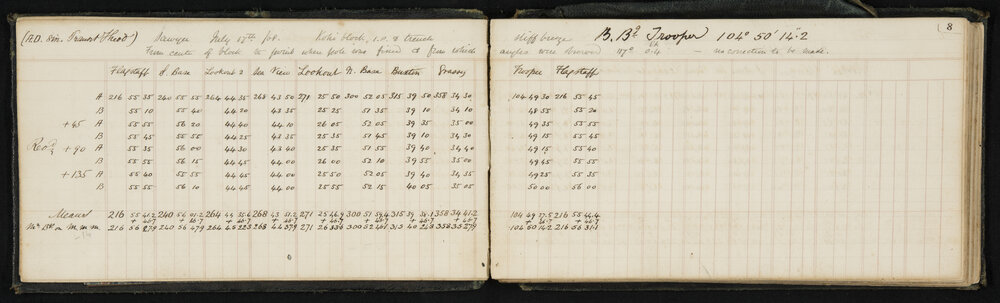 (A.D. 8in. Transit Theod) Sawyer July 17th /08. Pole block, 1.0 & trench stiff breeze B. Bd Trooper 104° 50' 14.2 8
From centre of block to point when pole was fixed & from which angles were observed 117° 0.4 — no correction to be made.
Flagstaff S. Base Lookout 2 Sea View Lookout N. Base Buxton Grassy Trooper Flagstaff
A 216 55 35 240 55 55 264 44 35 268 43 50 271 25 50 300 52 05 315 39 50 358 34 30 104 49 30 216 55 45
B 55 10 55 40 44 20 43 35 25 25 51 35 39 10 34 10 48 55 55 20
+45 A 55 55 56 20 44 40 44 10 26 05 52 05 39 35 35 00 49 35 55 55
B 55 45 55 55 44 25 43 35 25 35 51 45 39 10 34 30 49 15 55 45
+90 A 55 35 56 00 44 30 43 40 25 35 51 55 39 40 34 40 49 15 55 40
B 55 55 56 15 44 45 44 00 26 00 52 10 39 55 35 00 49 45 55 55
+135 A 55 40 55 55 44 45 44 00 25 50 52 05 39 40 34 35 49 25 55 35
B 55 55 56 10 44 45 44 00 25 55 52 15 40 05 35 05 50 00 56 00
Means 216 55 41.2 240 56 01.2 264 44 35.6 268 43 51.2 271 25 46.9 300 51 59.4 315 39 38.1 358 34 41.2 104 49 27.5 216 55 44.4
+ 46.7 + 46.7 + 46.7 + 46.7 + 46.7 + 46.7 + 46.7 + 46.7 + 46.7 + 46.7
216 56 27.9 240 56 47.9 264 45 22.3 268 44 37.9 271 26 33.6 300 52 46.1 315 40 24.8 358 35 27.9 104 50 14.2 216 56 31.1